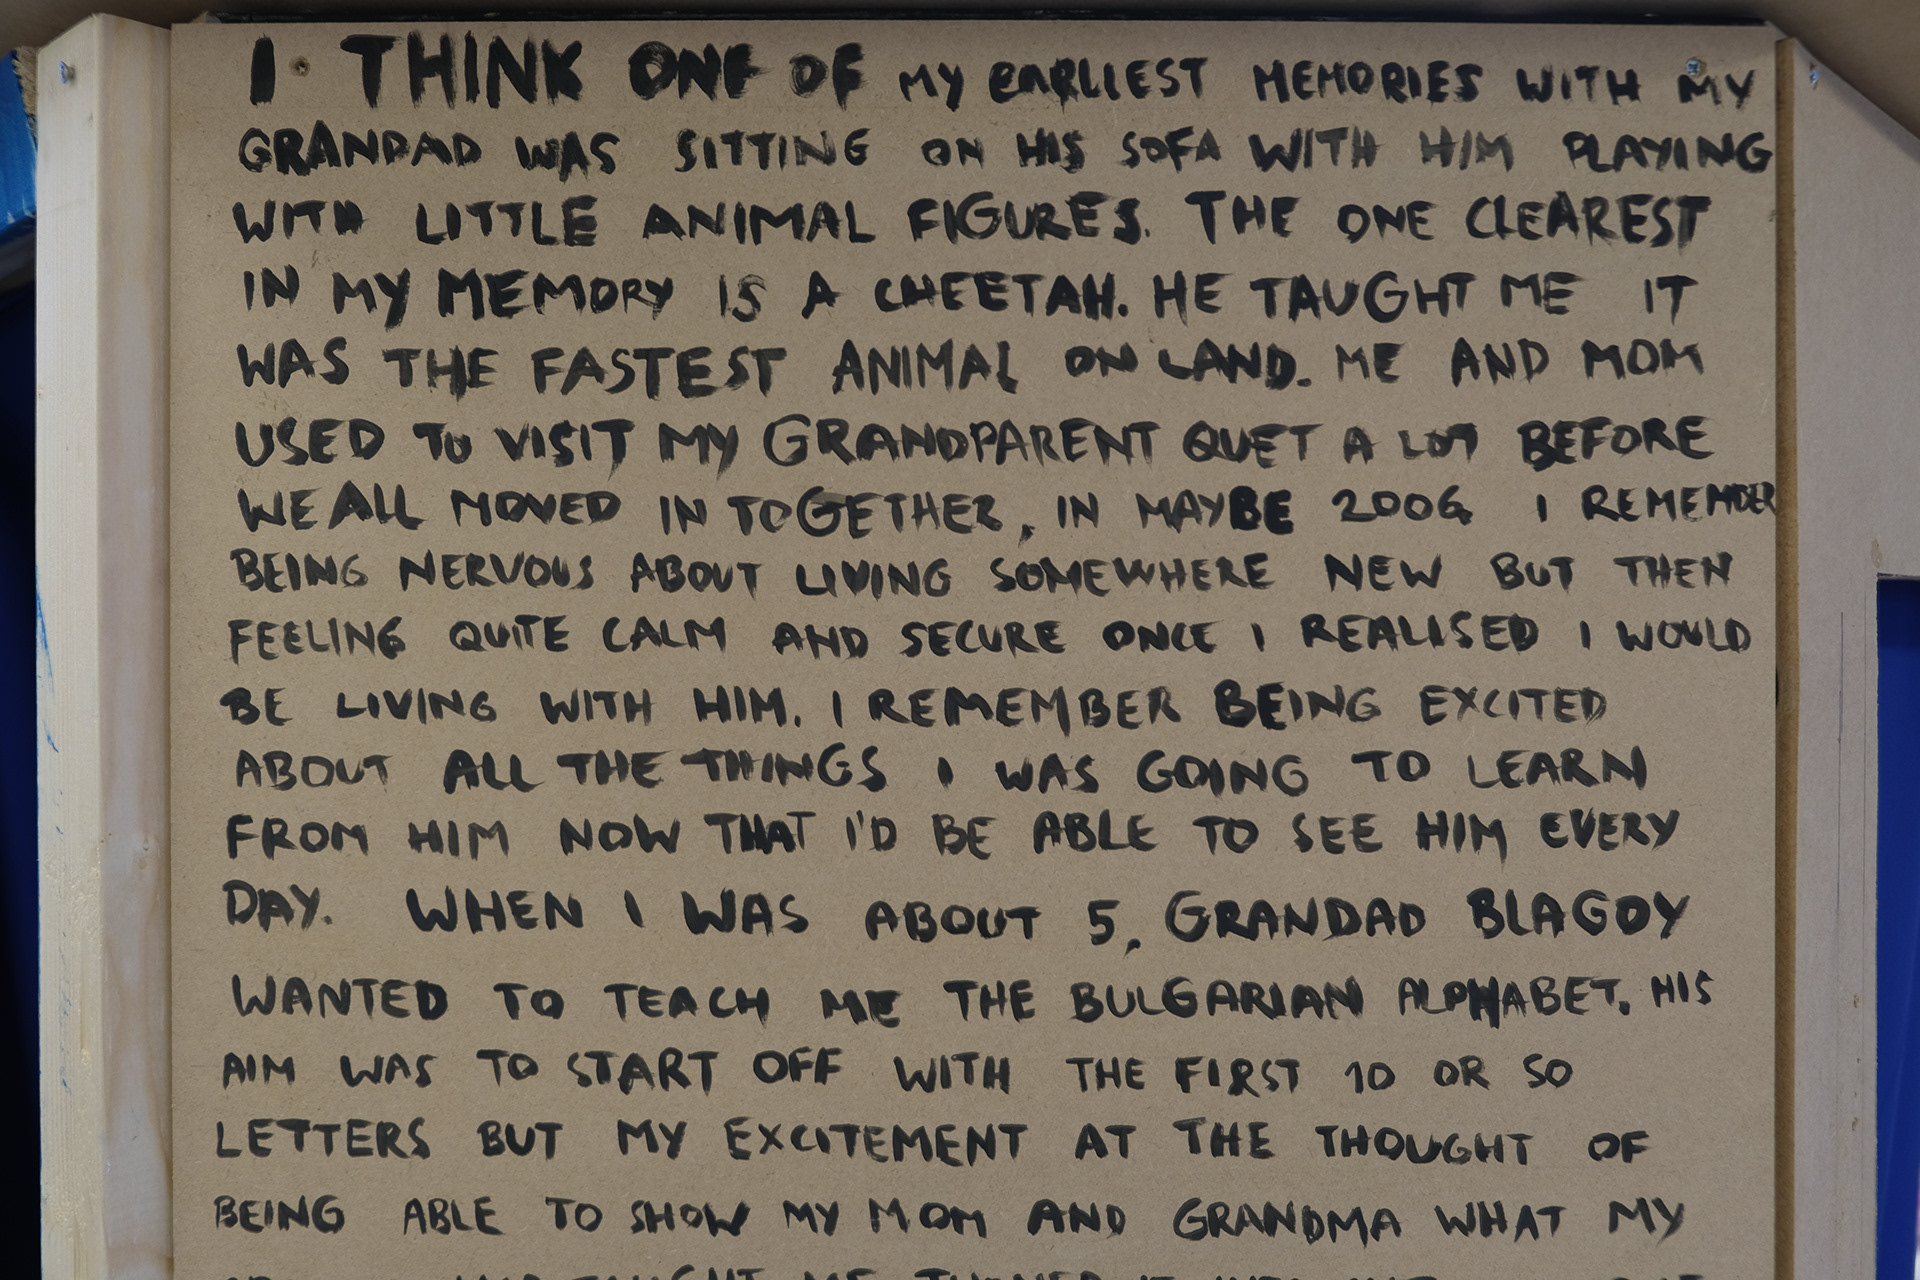 I THINK ONE OF MY EARLIEST MEMORIES WITH MY
GRANDAD WAS SITTING ON HIS SOFA WITH HIM PLAYING
WITH LITTLE ANIMAL FIGURES. THE ONE CLEAREST
IN MY MEMORY IS A CHEETAH. HE TAUGHT ME IT
WAS THE FASTEST ANIMAL ON LAND. ME AND MOM
USED TO VISIT MY GRANDPARENT QUET A LOT BEFORE
WE ALL MOVED IN TOGETHER, IN MAYBE 2006 I REMEMBER
BEING NERVOUS ABOUT LIVING SOMEWHERE NEW BUT THEN
FEELING QUITE CALM AND SECURE ONCE I REALISED I WOULD
BE LIVING WITH HIM. I REMEMBER BEING EXCITED
ABOUT ALL THE THINGS I WAS GOING TO LEARN
FROM HIM NOW THAT I'D BE ABLE TO SEE HIM EVERY
DAY. WHEN I WAS ABOUT 5, GRANDAD BLAGOY
WANTED TO TEACH ME THE BULGARIAN ALPHABET. HIS
AIM WAS TO START OFF WITH THE FIRST 10 OR SO
LETTERS BUT MY EXCITEMENT AT THE THOUGHT OF
BEING ABLE TO SHOW MY MOM AND GRANDMA WHAT MY